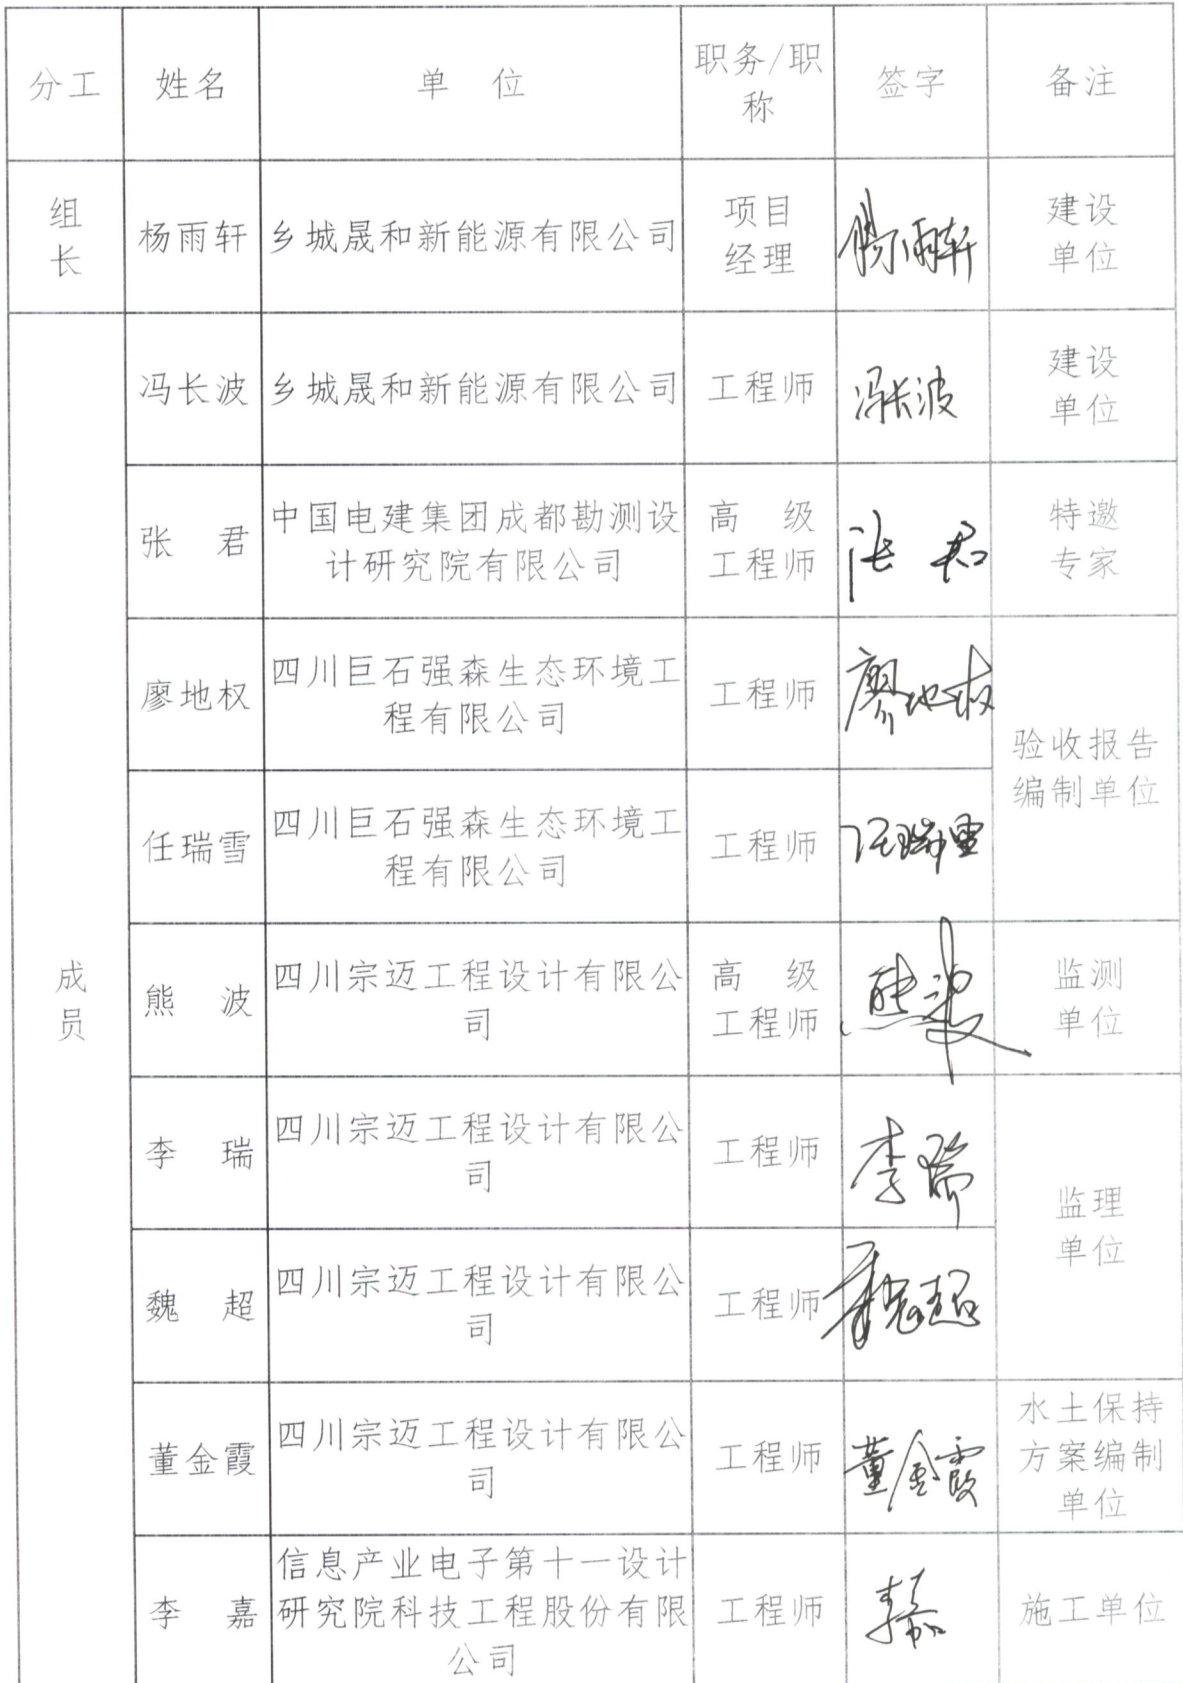 分工 姓名 单 位 职务/职称 签字 备注
组长 杨雨轩 乡城晟和新能源有限公司 项目经理 杨雨轩 建设单位
成员
冯长波 乡城晟和新能源有限公司 工程师 冯长波 建设单位
张 君 中国电建集团成都勘测设计研究院有限公司 高 级工程师 张君 特邀专家
廖地权 四川巨石强森生态环境工程有限公司 工程师 廖地权 验收报告编制单位
任瑞雪 四川巨石强森生态环境工程有限公司 工程师 任瑞雪
熊 波 四川宗迈工程设计有限公司 高 级工程师 熊波 监测单位
李 瑞 四川宗迈工程设计有限公司 工程师 李瑞 监理单位
魏 超 四川宗迈工程设计有限公司 工程师 魏超
董金霞 四川宗迈工程设计有限公司 工程师 董金霞 水土保持方案编制单位
李 嘉 信息产业电子第十一设计研究院科技工程股份有限公司 工程师 李嘉 施工单位